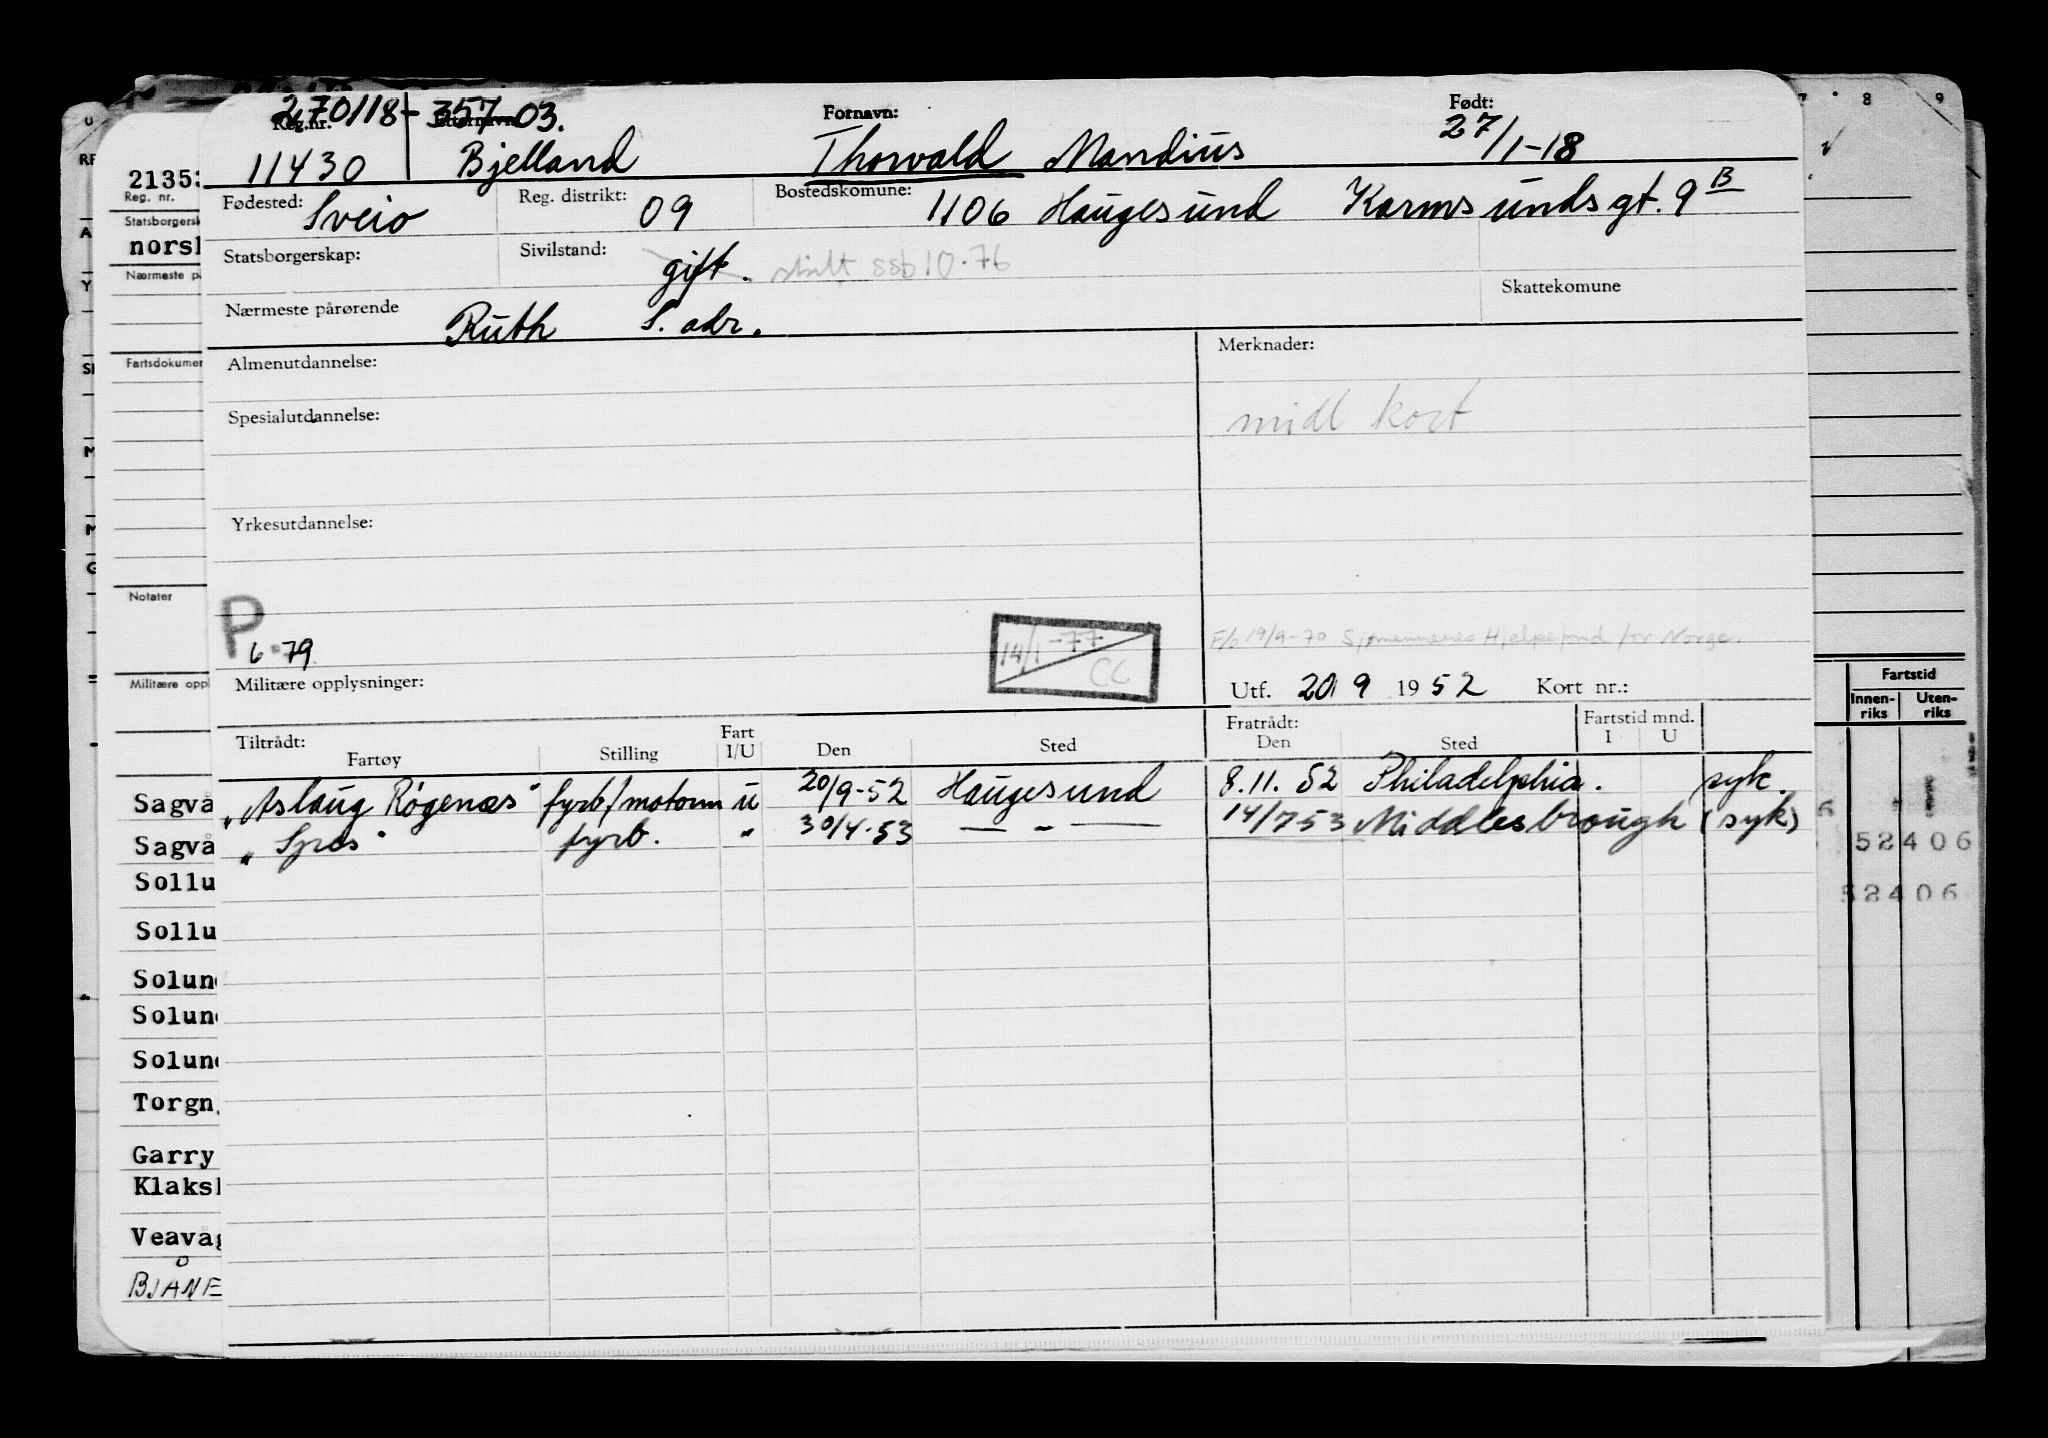 270118-35703.
Reg.nr. Etternavn: Fornavn: Født:
11430 Bjelland Thorvald Mandius 27/1-18
Fødested: Sveio Reg. distrikt: 09 Bostedskomune: 1106 Haugesund Karmsundsgt. 9 B
Statsborgerskap: Sivilstand: gift. skilt ssb 10.76
Skattekomune
Nærmeste pårørende Ruth S. adr.
Almenutdannelse: Merknader:
Spesialutdannelse: midl kort
Yrkesutdannelse:
P
6.79 14/1-77 CC
F/b 19/9-70 Sjømennenes Hjelpefond for Norge.
Militære opplysninger: Utf. 20 9 1952 Kort nr.:
Tiltrådt: Fratrådt: Fartstid mnd.
Fartøy Stilling Fart I/U Den Sted Den Sted I U
"Aslaug Røgenæs" fyrb/motorm u 20/9-52 Haugesund 8.11.52 Philadelphia. syk.
fyrb. " 30/4-53 — " — 14/7 53 Middlesbrough (syk)
21353
Reg. nr.
Statsborgersk
norsl
Nærmeste på
Fartsdokumen
Notater
Militære oppl
Sagvå
Sagvå
Sollu
Sollu
Solun
Solun
Solun
Torgn
Garry
Klaks
Veavåg
BJANE
8 9
Fartstid
Innen-riks Uten-riks
52406
52406